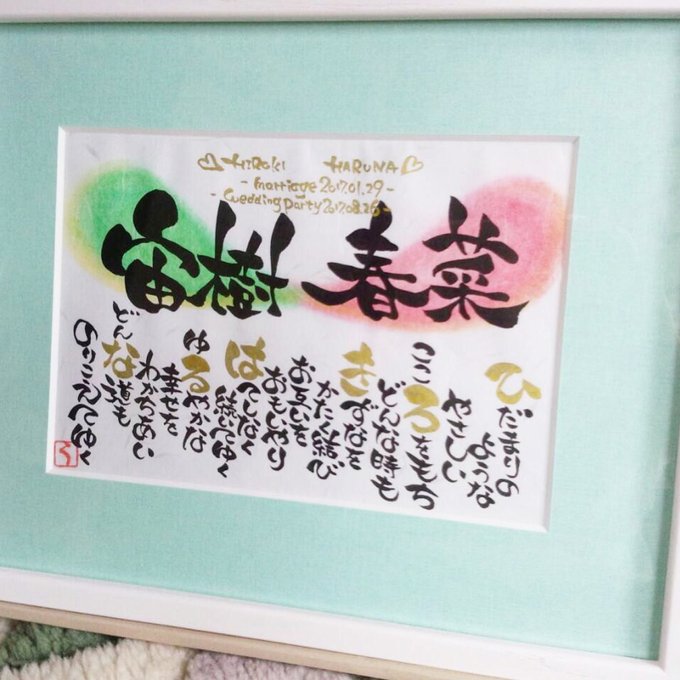 ♡HIROKI HARUNA♡
- marriage 2017.01.29 -
- Wedding Party 2017.08.26 -
宙樹 春菜
ひだまりの
ような
やさしい
こころをもち
どんな時も
きずなを
かたく結び
お互いを
おもいやり
はてしなく
続いてゆく
ゆるやかな
幸せを
わかちあい
どんな道も
のりこえてゆく